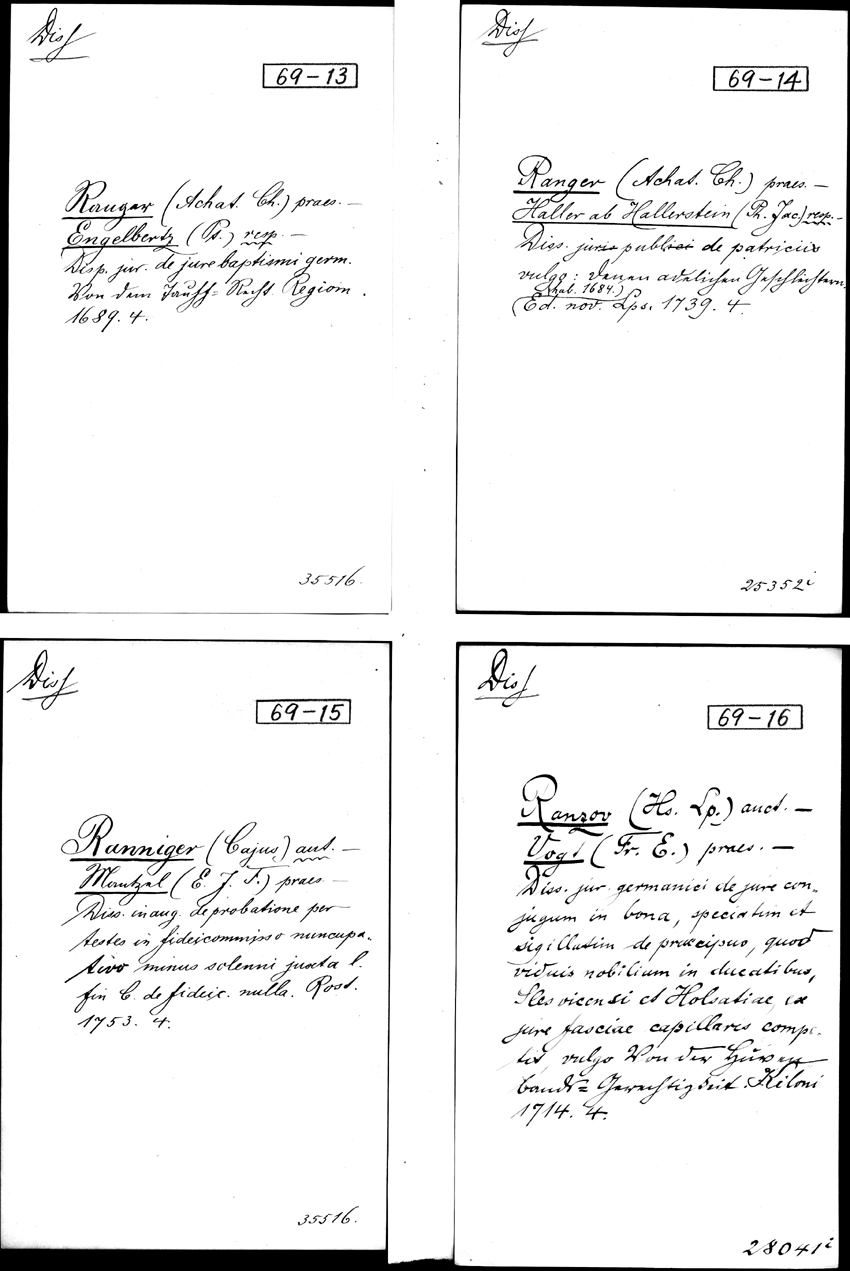 Diss
69-13
Ranger (Achat. Ch.) praes. —
Engelbertz (Ps.) resp. —
Disp. jur. de jure baptismi germ.
Von dem Tauff= Recht. Regiom.
1689. 4.
35516.
Diss
69-14
Ranger (Achat. Ch.) praes. —
Haller ab Hallerstein (Ph. Jac.) resp. —
Diss. juris publici de patriciis
vulgo: denen adelichen Geschlechtern.
(hab. 1684.)
(Ed. nov. Lps. 1739. 4.
25352i
Diss
69-15
Ranniger (Cajus) aut. —
Mantzel (E. J. F.) praes —
Diss. inaug. de probatione per
testes in fideicommisso nuncupa-
tivo minus solenni juxta l.
fin C. de fideic. nulla. Rost.
1753. 4.
35516.
Diss
69-16
Ranzov (Hs. Lp.) auct. —
Vogt (Fr. E.) praes. —
Diss. jur. germanici de jure con-
jugum in bona, speciatim et
sigillatim de praecipuo, quod
viduis nobilium in ducatibus,
Slesvicensi et Holsatiae, ex
jure fasciae capillaris compe-
tit, vulgo Von der Huven
bands= Gerechtigkeit. Kiloni
1714. 4.
28041i